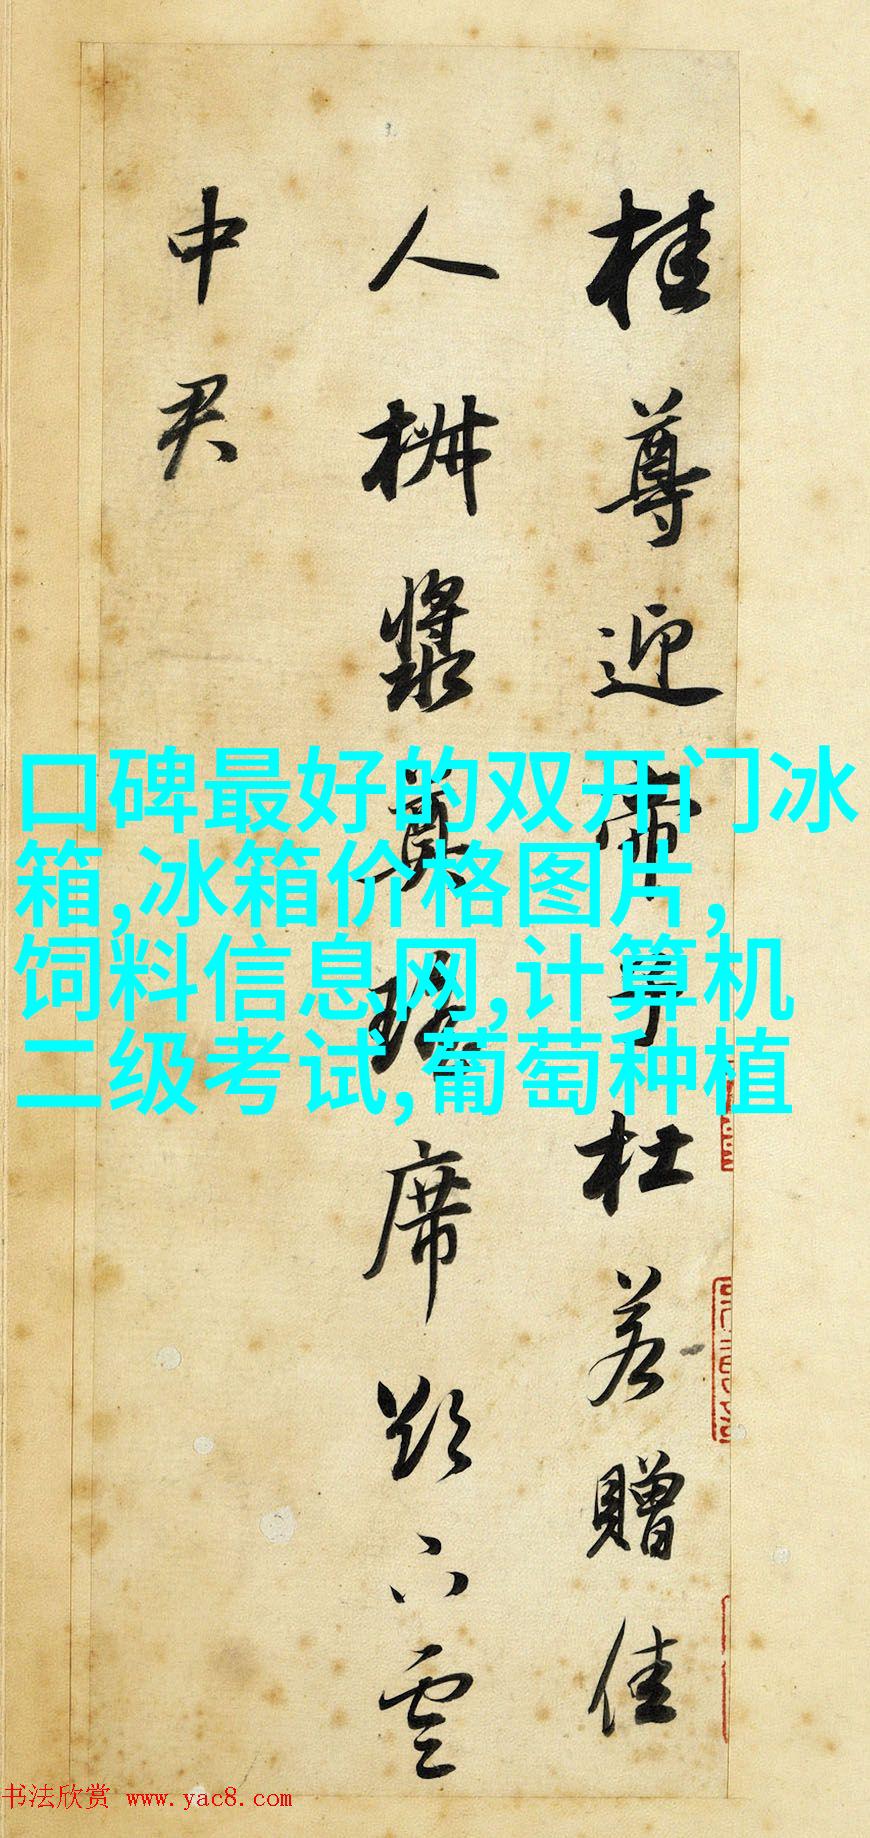 桂尊迎帝子杜若贈佳
人椒漿奠瑤席欲下雲
中君
口碑最好的双开门冰
箱,冰箱价格图片,
饲料信息网,计算机
二级考试,葡萄种植
书法欣赏 www.yac8.com